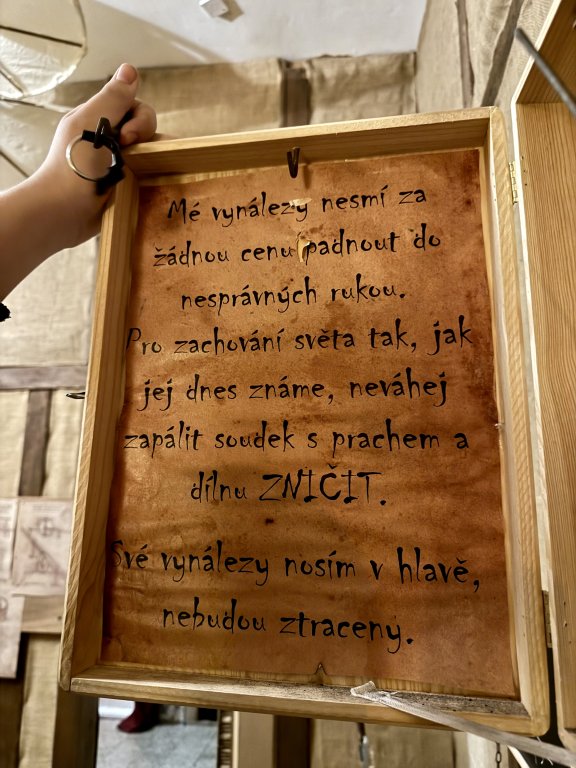 Mé vynálezy nesmí za
žádnou cenu padnout do
nesprávných rukou.
Pro zachování světa tak, jak
jej dnes známe, neváhej
zapálit soudek s prachem a
dílnu ZNIČIT.
Své vynálezy nosím v hlavě,
nebudou ztraceny.